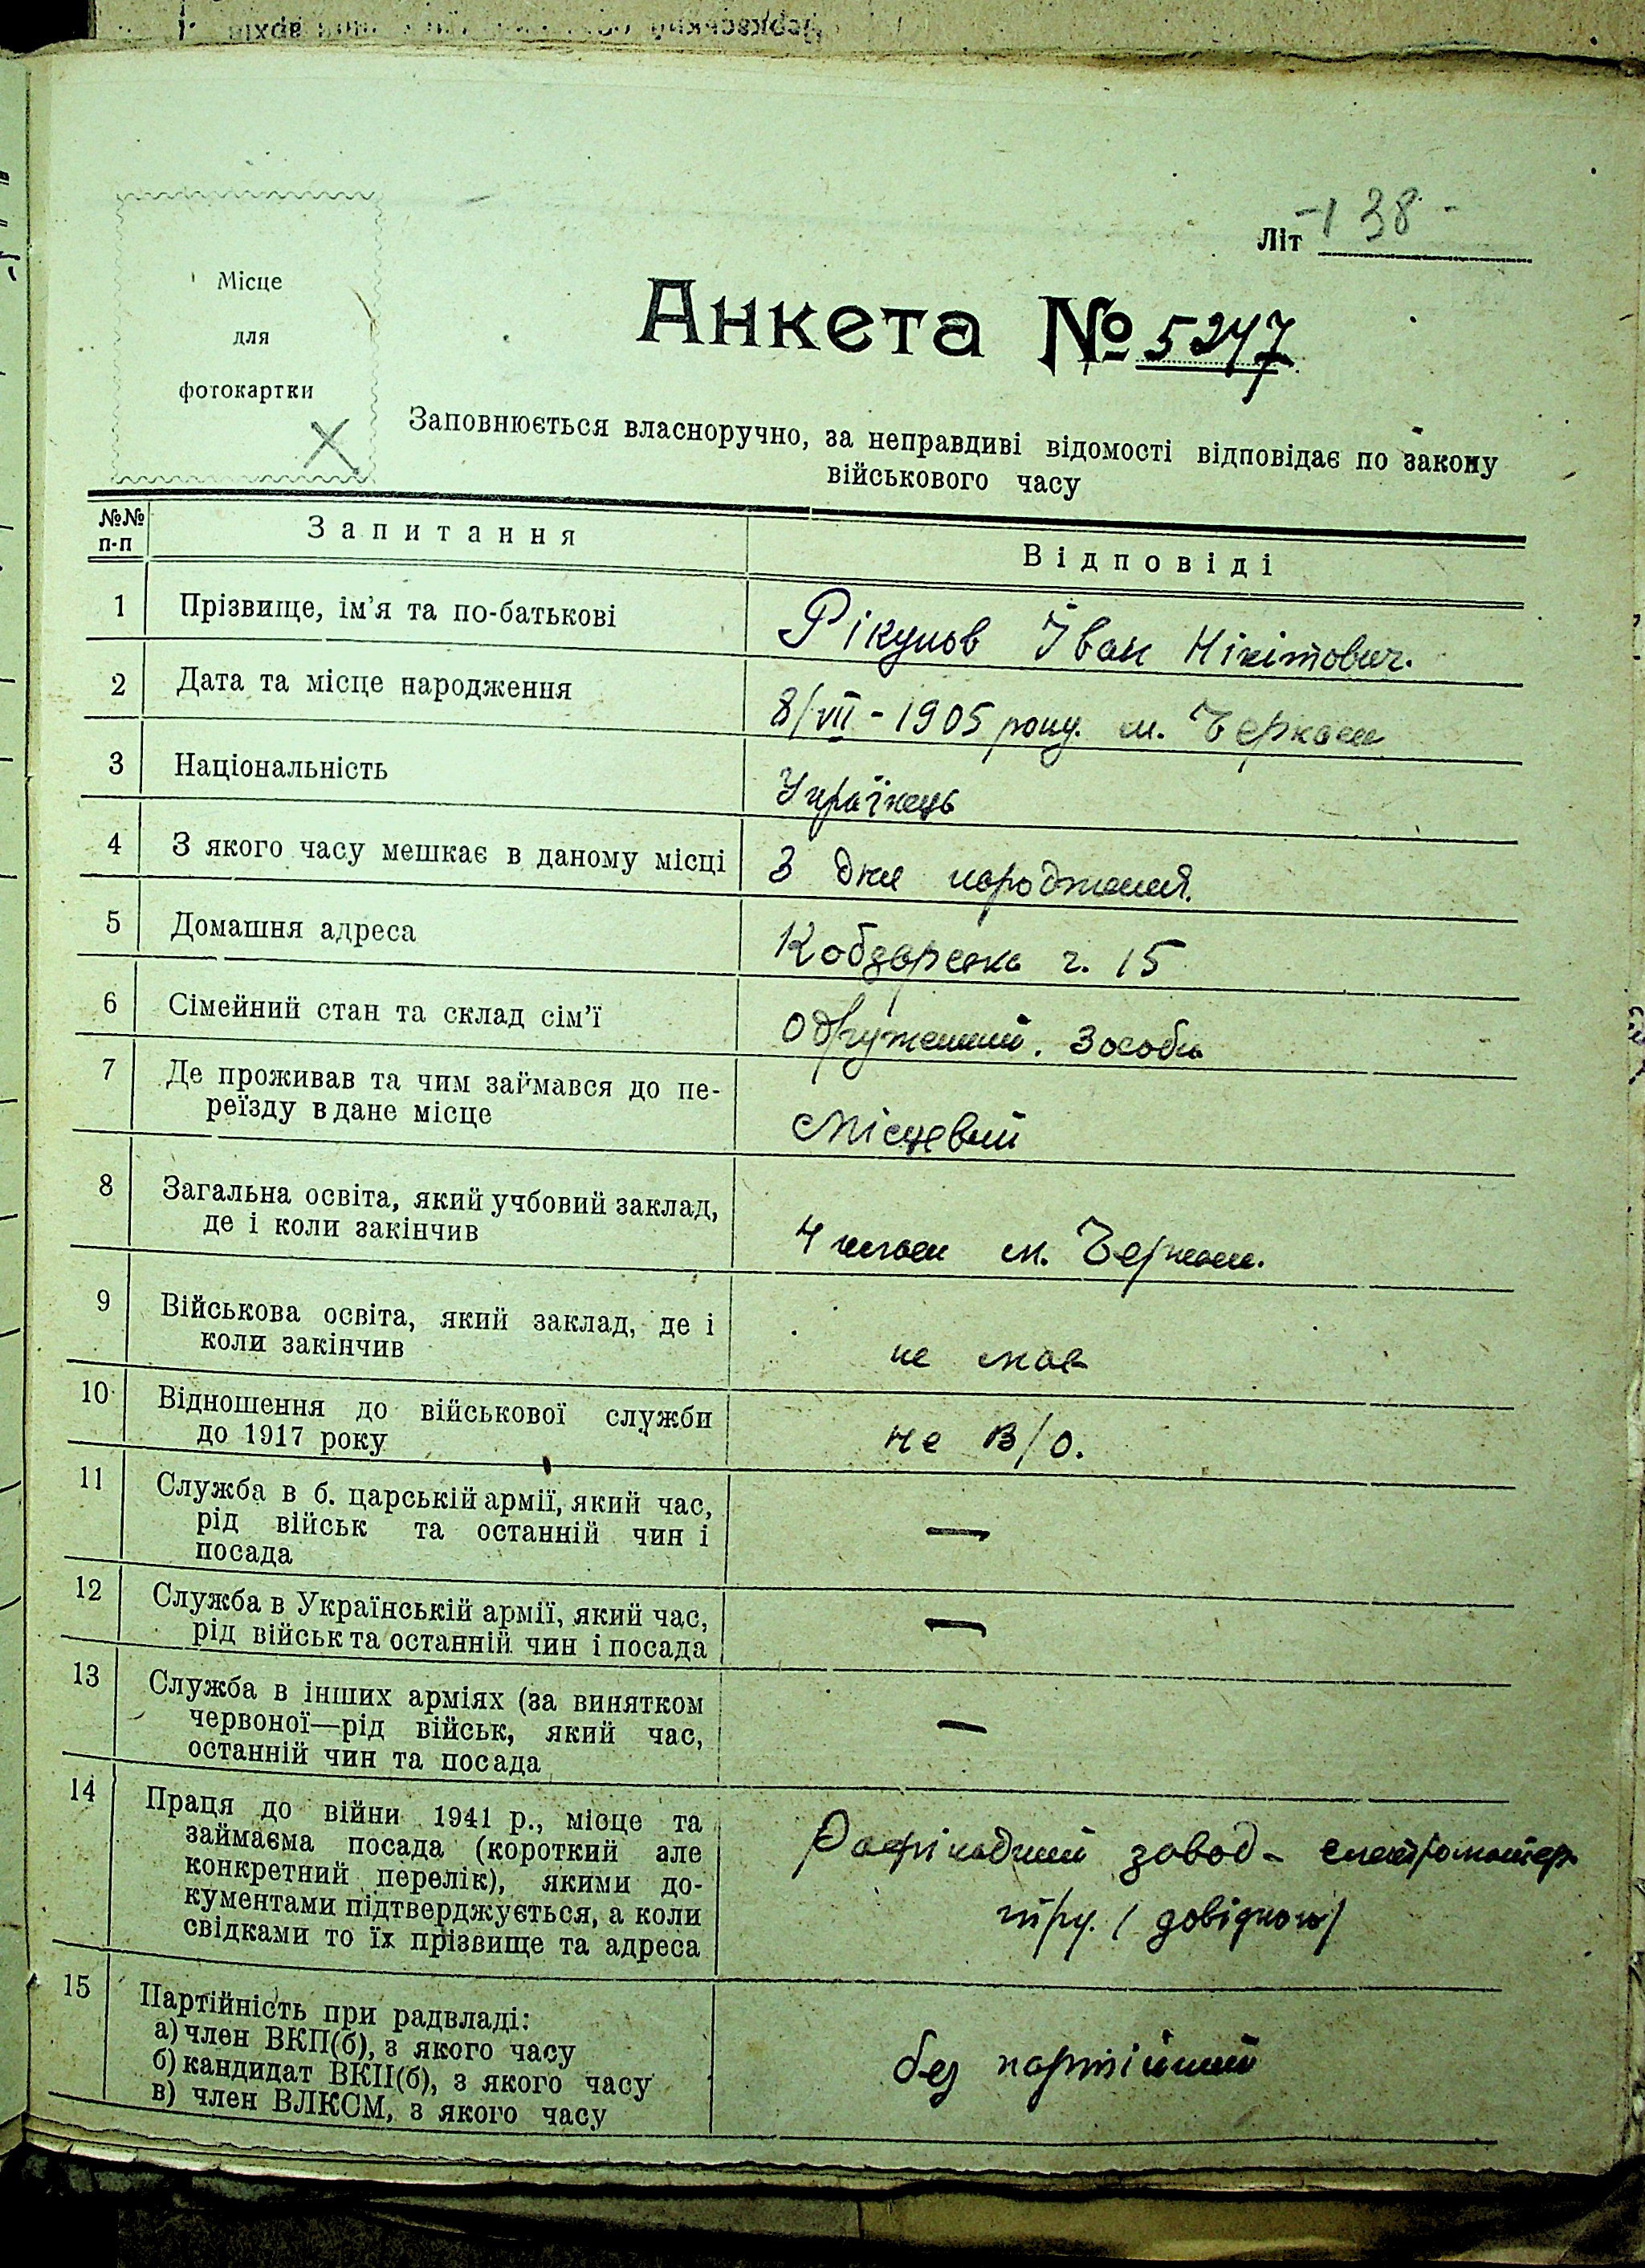 Літ -138-
Місце
для
фотокартки
Анкета № 5247
Заповнюється власноручно, за неправдиві відомості відповідає по закону
військового часу
№№
п-п
Запитання
Відповіді
1 Прізвище, ім'я та по-батькові
Рікунов Іван Нікітович.
2 Дата та місце народження
8/VII - 1905 року. м. Черкаси
3 Національність
Українець
4 З якого часу мешкає в даному місці
З дня народження.
5 Домашня адреса
ч. 15
6 Сімейний стан та склад сім'ї
Одружений. 3 особи
7 Де проживав та чим займався до пе-
реїзду в дане місце
Місцевий
8 Загальна освіта, який учбовий заклад,
де і коли закінчив
4 класи м. Черкаси.
9 Військова освіта, який заклад, де і
коли закінчив
не мав
10 Відношення до військової служби
до 1917 року
не в/о.
11 Служба в б. царській армії, який час,
рід військ та останній чин і
посада
—
12 Служба в Українській армії, який час,
рід військ та останній чин і посада
—
13 Служба в інших арміях (за винятком
червоної—рід військ, який час,
останній чин та посада
—
14 Праця до війни 1941 р., місце та
займаєма посада (короткий але
конкретний перелік), якими до-
кументами підтверджується, а коли
свідками то їх прізвище та адреса
Рафінадний завод -
15 Партійність при радвладі:
а) член ВКП(б), з якого часу
б) кандидат ВКП(б), з якого часу
в) член ВЛКСМ, з якого часу
без партійний